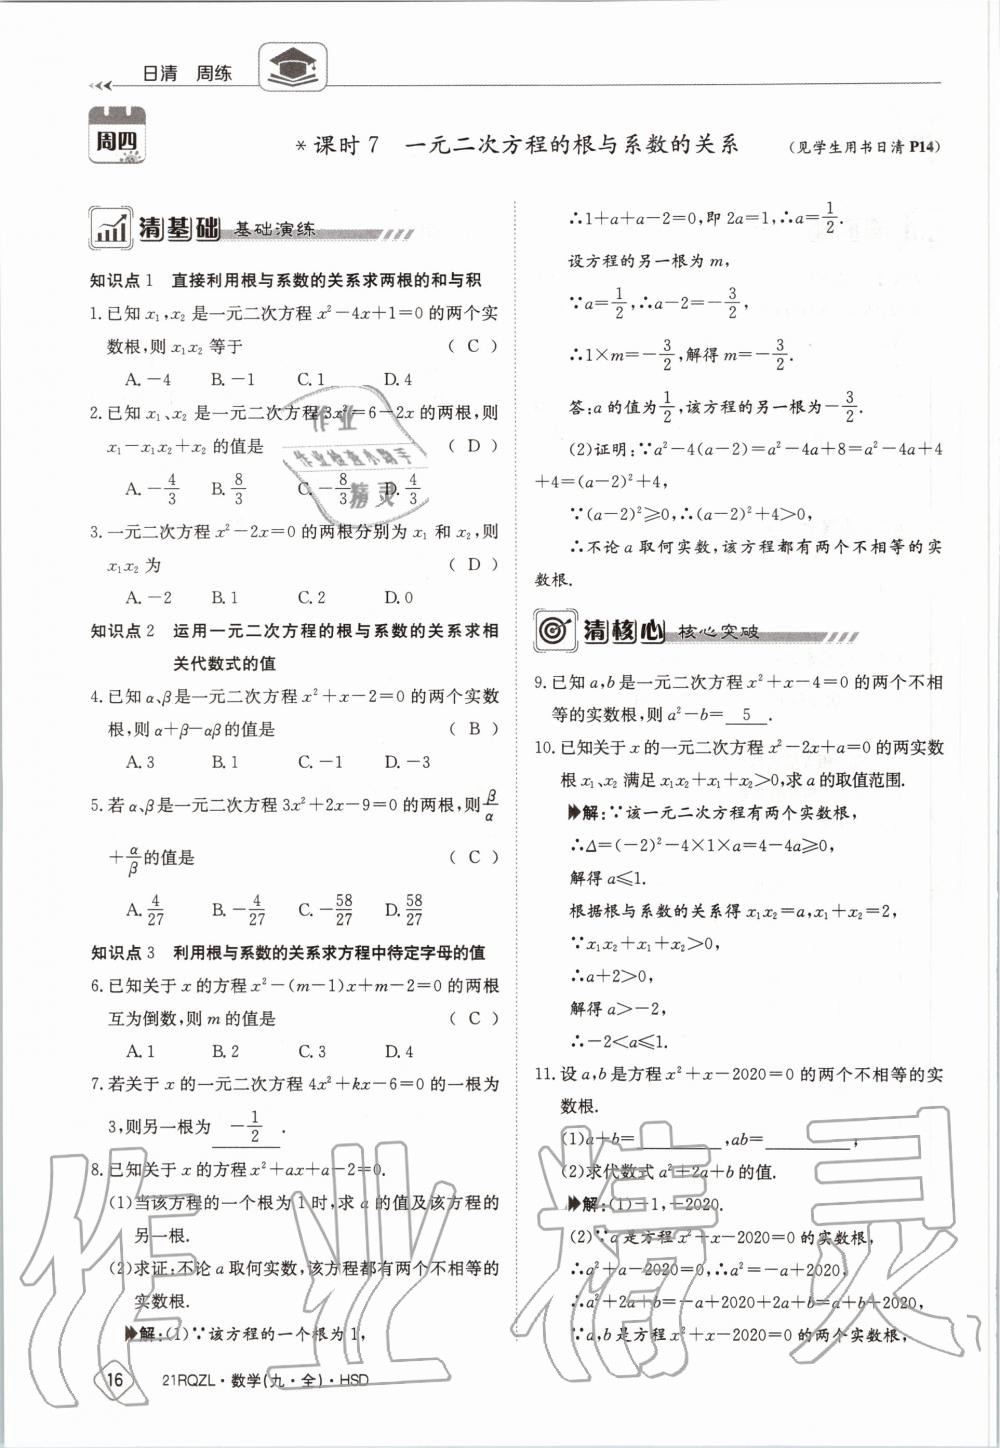 日清　周练
周四
*课时7　一元二次方程的根与系数的关系　（见学生用书日清P14）
清基础　基础演练
知识点1　直接利用根与系数的关系求两根的和与积
1.已知x₁,x₂是一元二次方程x²-4x+1=0的两个实
数根,则x₁x₂等于　（ C ）
A.-4　B.-1　C.1　D.4
2.已知x₁、x₂是一元二次方程3x²=6-2x的两根,则
x₁-x₁x₂+x₂的值是　（ D ）
A.-4/3　B.8/3　C.-8/3　D.4/3
3.一元二次方程x²-2x=0的两根分别为x₁和x₂,则
x₁x₂为　（ D ）
A.-2　B.1　C.2　D.0
知识点2　运用一元二次方程的根与系数的关系求相
关代数式的值
4.已知α、β是一元二次方程x²+x-2=0的两个实数
根,则α+β-αβ的值是　（ B ）
A.3　B.1　C.-1　D.-3
5.若α、β是一元二次方程3x²+2x-9=0的两根,则β/α
+α/β的值是　（ C ）
A.4/27　B.-4/27　C.-58/27　D.58/27
知识点3　利用根与系数的关系求方程中待定字母的值
6.已知关于x的方程x²-(m-1)x+m-2=0的两根
互为倒数,则m的值是　（ C ）
A.1　B.2　C.3　D.4
7.若关于x的一元二次方程4x²+kx-6=0的一根为
3,则另一根为 -1/2 .
8.已知关于x的方程x²+ax+a-2=0.
(1)当该方程的一个根为1时,求a的值及该方程的
另一根.
(2)求证:不论a取何实数,该方程都有两个不相等的
实数根.
解:(1)∵该方程的一个根为1,
∴1+a+a-2=0,即2a=1,∴a=1/2.
设方程的另一根为m,
∵a=1/2,∴a-2=-3/2,
∴1×m=-3/2,解得m=-3/2.
答:a的值为1/2,该方程的另一根为-3/2.
(2)证明:∵a²-4(a-2)=a²-4a+8=a²-4a+4
+4=(a-2)²+4,
∵(a-2)²≥0,∴(a-2)²+4>0,
∴不论a取何实数,该方程都有两个不相等的实
数根.
清核心　核心突破
9.已知a,b是一元二次方程x²+x-4=0的两个不相
等的实数根,则a²-b= 5 .
10.已知关于x的一元二次方程x²-2x+a=0的两实数
根x₁、x₂满足x₁x₂+x₁+x₂>0,求a的取值范围.
解:∵该一元二次方程有两个实数根,
∴Δ=(-2)²-4×1×a=4-4a≥0,
解得a≤1.
根据根与系数的关系得x₁x₂=a,x₁+x₂=2,
∵x₁x₂+x₁+x₂>0,
∴a+2>0,
解得a>-2,
∴-2<a≤1.
11.设a,b是方程x²+x-2020=0的两个不相等的实
数根.
(1)a+b=________,ab=________;
(2)求代数式a²+2a+b的值.
解:(1)-1,-2020.
(2)∵a是方程x²+x-2020=0的实数根,
∴a²+a-2020=0,∴a²=-a+2020,
∴a²+2a+b=-a+2020+2a+b=a+b+2020,
∵a,b是方程x²+x-2020=0的两个实数根,
16　21RQZL·数学(九·全)·HSD
作业
作业检查小助手
精灵
作业精灵